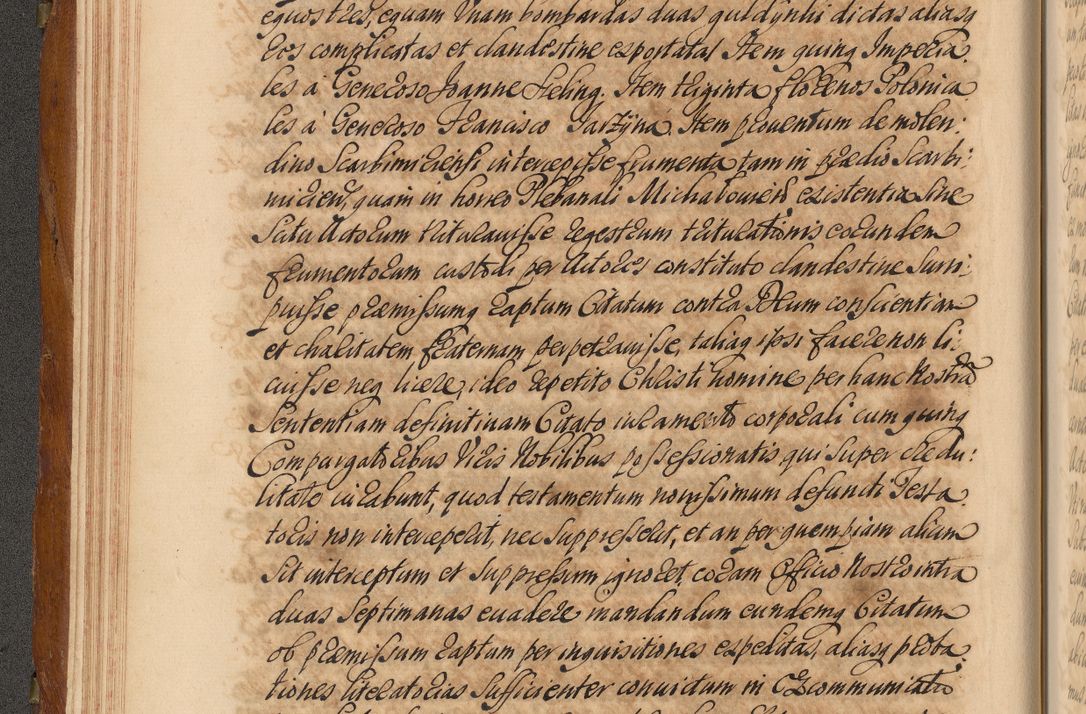 equos tres, equam Unam bombardas duas guldynki dictas aliasq
Eos complicatas et clandestine exportatas Item quinq Imperia:
les à Generoso Joanne Heling. Item triginta florenos Polonica
les à Generoso Francisco Jarzÿna. Item proventum de molen:
dino Scarbimirensi intercepisse frumenta tam in prædio Scarbi:
mirien, quam in horreo Plebanali Michaloviens existentia sine
Scitu Actorum triturauisse regestrum triturationis eorundem
frumentorum custodi per Actores constituto clandestine surri:
puisse præmissumq raptum Citatum contra Deum conscientiam
et charitatem fraternam perpetrauisse, taliaq ipsi facere non li:
cuisse neq licere, ideo repetito Christi nomine per hanc Nostrã
Sententiam definitivam Citato iuramento corporali cum quinq
Compurgatoribus Viris Nobilibus possessionatis qui super credu:
litate iurabunt, quod testamentum novissimum defuncti Testa
toris non interceperit, nec suppresserit, et an per quempiam alium
Sit interceptum et suppressum ignoret, coram Officio Nostro intra
duas Septimanas evadere mandandum eundemq Citatum
ob præmissum raptum per inquisitiones expeditas, aliasq proba:
tiones literatorias sufficienter convictum in Excommunicatio